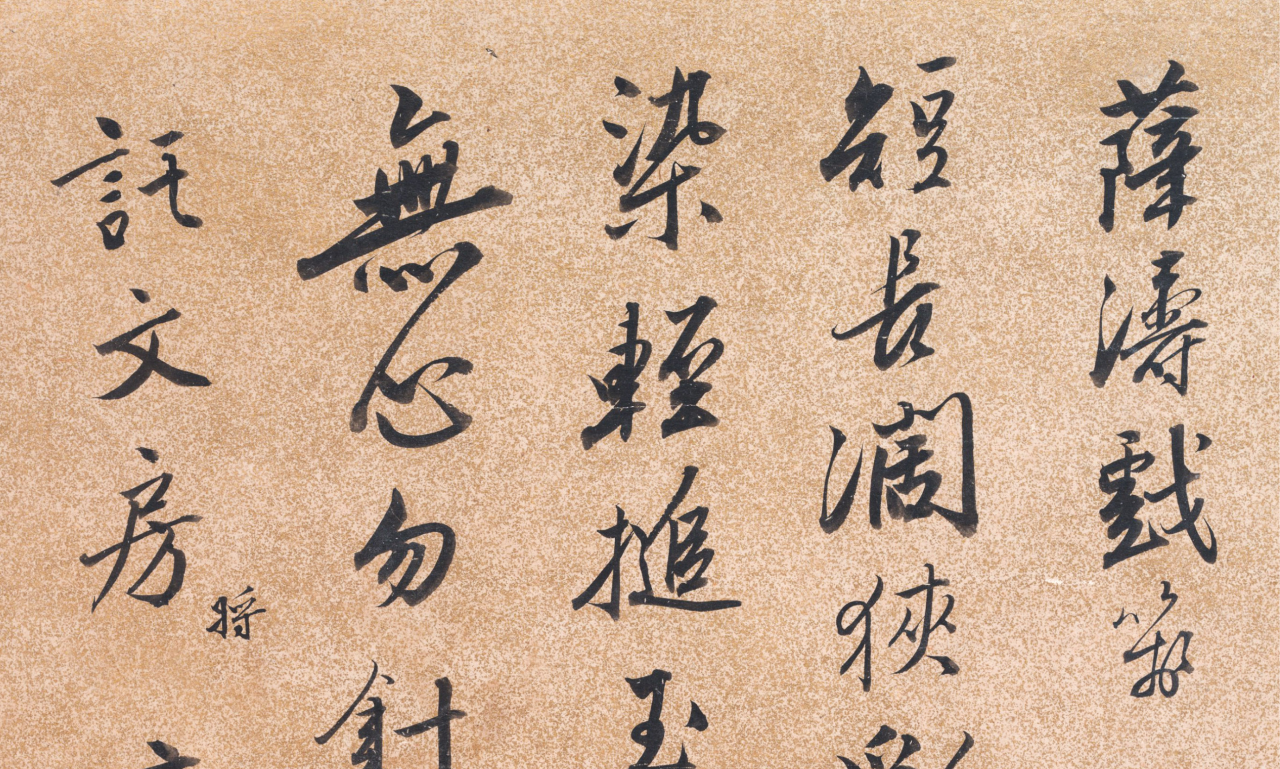 薛濤戲箋
短長闊狹
染輕搥玉
無心勿針
託文房
將